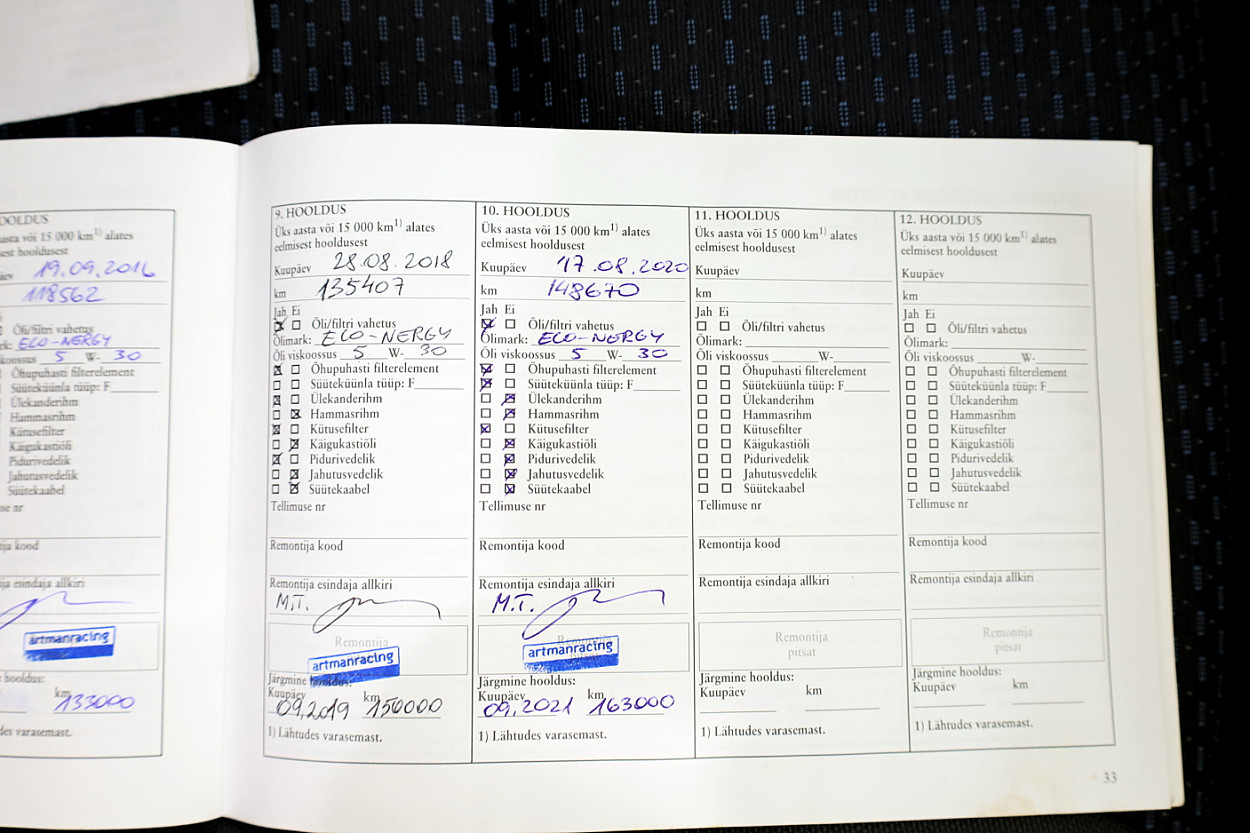 OOLDUS
aasta või 15 000 km1) alates
sest hooldusest
äev 19.09.2016
118562
Õli/filtri vahetus
rk: ECO-NERGY
koossus 5 W- 30
Õhupuhasti filterelement
Süüteküünla tüüp: F
Ülekanderihm
Hammasrihm
Kütusefilter
Käigukastiõli
Pidurivedelik
Jahutusvedelik
Süütekaabel
use nr
tija kood
tija esindaja allkiri
artmanracing
e hooldus:
km
133000
des varasemast.
9. HOOLDUS
Üks aasta või 15 000 km1) alates
eelmisest hooldusest
Kuupäev 28.08.2018
km 135407
Jah Ei
Õli/filtri vahetus
Õlimark: ECO-NERGY
Õli viskoossus 5 W- 30
Õhupuhasti filterelement
Süüteküünla tüüp: F
Ülekanderihm
Hammasrihm
Kütusefilter
Käigukastiõli
Pidurivedelik
Jahutusvedelik
Süütekaabel
Tellimuse nr
Remontija kood
Remontija esindaja allkiri
M.T.
Remontija
artmanracing
Järgmine hooldus:
Kuupäev km
09.2019 150000
1) Lähtudes varasemast.
10. HOOLDUS
Üks aasta või 15 000 km1) alates
eelmisest hooldusest
Kuupäev 17.08.2020
km 148670
Jah Ei
Õli/filtri vahetus
Õlimark: ECO-NERGY
Õli viskoossus 5 W- 30
Õhupuhasti filterelement
Süüteküünla tüüp: F
Ülekanderihm
Hammasrihm
Kütusefilter
Käigukastiõli
Pidurivedelik
Jahutusvedelik
Süütekaabel
Tellimuse nr
Remontija kood
Remontija esindaja allkiri
M.T.
artmanracing
Järgmine hooldus:
Kuupäev km
09.2021 163000
1) Lähtudes varasemast.
11. HOOLDUS
Üks aasta või 15 000 km1) alates
eelmisest hooldusest
Kuupäev
km
Jah Ei
Õli/filtri vahetus
Õlimark:
Õli viskoossus W-
Õhupuhasti filterelement
Süüteküünla tüüp: F
Ülekanderihm
Hammasrihm
Kütusefilter
Käigukastiõli
Pidurivedelik
Jahutusvedelik
Süütekaabel
Tellimuse nr
Remontija kood
Remontija esindaja allkiri
Remontija
pitsat
Järgmine hooldus:
Kuupäev km
1) Lähtudes varasemast.
12. HOOLDUS
Üks aasta või 15 000 km1) alates
eelmisest hooldusest
Kuupäev
km
Jah Ei
Õli/filtri vahetus
Õlimark:
Õli viskoossus W-
Õhupuhasti filterelement
Süüteküünla tüüp: F
Ülekanderihm
Hammasrihm
Kütusefilter
Käigukastiõli
Pidurivedelik
Jahutusvedelik
Süütekaabel
Tellimuse nr
Remontija kood
Remontija esindaja allkiri
Remontija
pitsat
Järgmine hooldus:
Kuupäev km
1) Lähtudes varasemast.
33